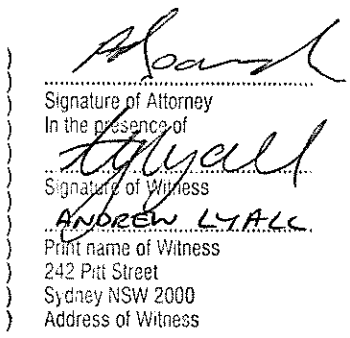 )
) Signature of Attorney
) In the presence of
)
) Signature of Witness
) ANDREW LYALL
) Print name of Witness
) 242 Pitt Street
) Sydney NSW 2000
) Address of Witness